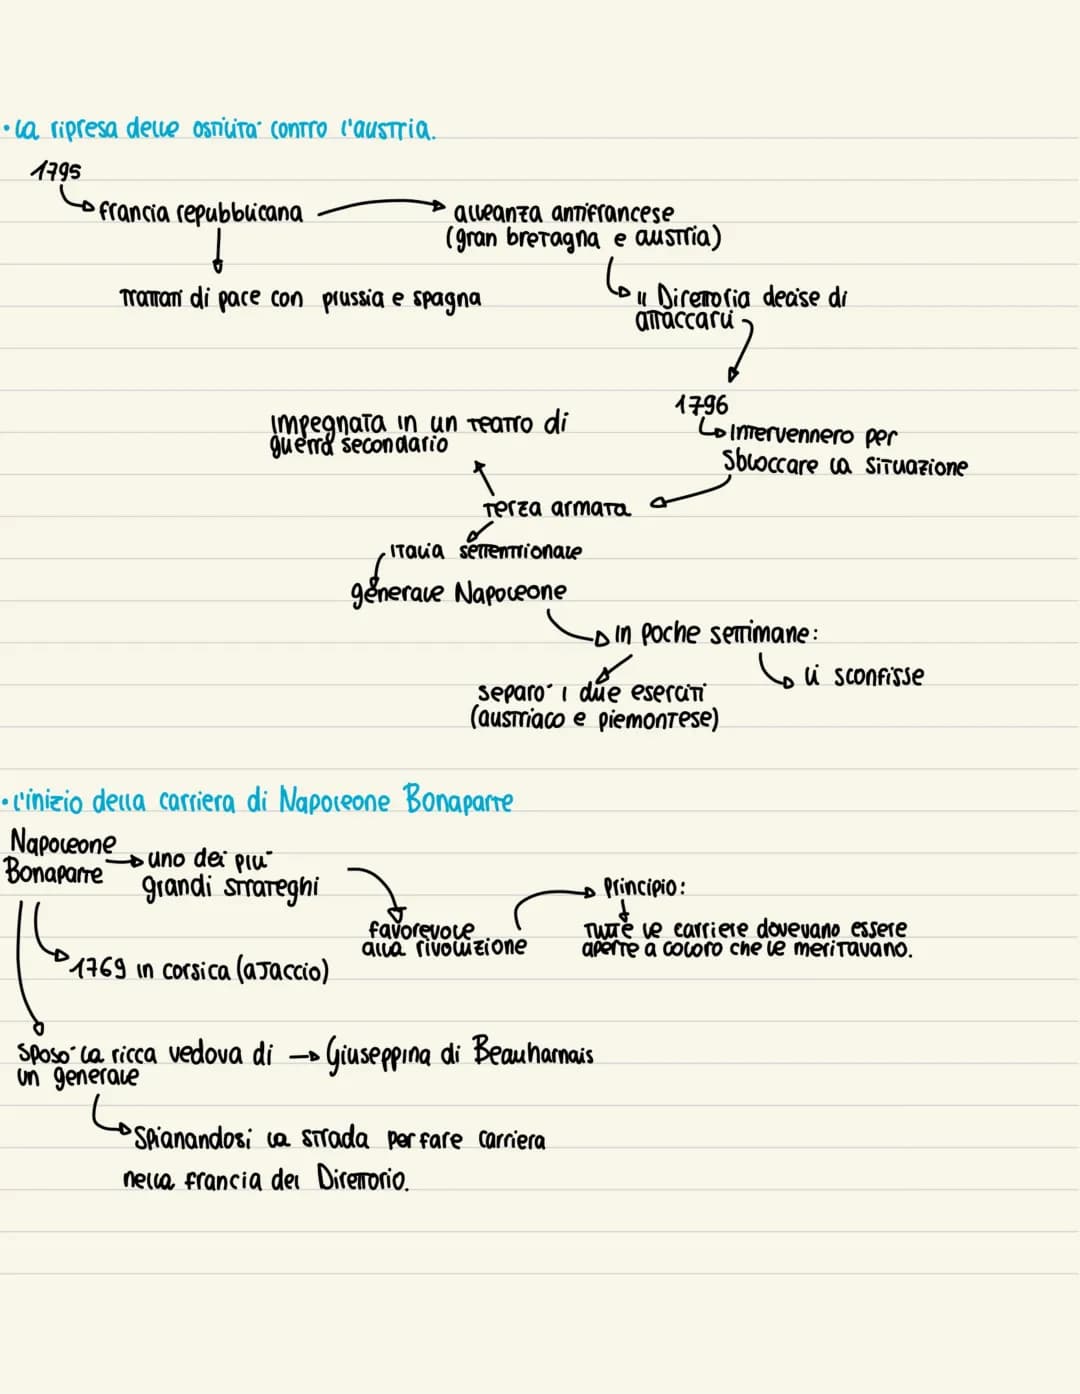 • la ripresa delle ostilita' contro l'austria.
1795
francia repubblicana
alleanza antifrancese
(gran bretagna e austria)
trattati di pace con prussia e spagna
il Direttoria decise di
attaccarli
1796
intervennero per
sbloccare la situazione
impegnata in un teatro di
guerra secondario
terza armata
italia settentrionale
generale Napoleone
in poche settimane:
separo' i due eserciti
(austriaco e piemontese)
li sconfisse
• l'inizio della carriera di Napoleone Bonaparte
Napoleone
Bonaparte
uno dei piu'
grandi strateghi
favorevole
alla rivoluzione
Principio:
tutte le carriere dovevano essere
aperte a coloro che le meritavano.
1769 in corsica (aJaccio)
sposo' la ricca vedova di → Giuseppina di Beauharnais
un generale
spianandosi la strada per fare carriera
nella francia del Direttorio.